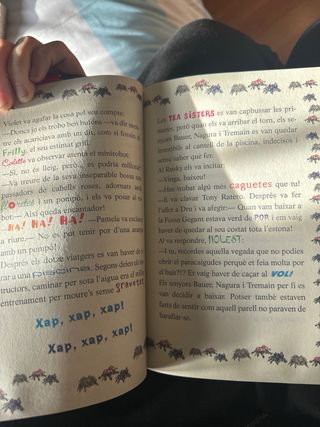 Violet va agafar la cosa pel seu compte:
—Doncs jo els trobo ben bufons —va dir
tre els acariciava amb un dit, com si fossin
Frilly, el seu estimat grill.
Colette va observar atenta el minirobot:
—Sí, no és lleig, però... es podria millorar
—Va treure de la seva inseparable bossa un
passador de cabells roses, adornats amb
i un pompó, i els va posar al
bot— Així queda encantador!
—HA! HA! HA! —Pamela va esclatar
a riure—. No es pot tenir por d'una aranya
amb un pompó!
Després els dotze viatgers es van haver de
rar a una piscina. Segons deien els
tructors, caminar per sota l'aigua era el millor
entrenament per moure's sense gravetat.
Xap, xap, xap!
Xap, xap, xap!
Les TEA SISTERS es van capbussar les pri-
meres, però quan els va arribar el torn, els se-
nyors Bauer, Nagura i Tremain es van quedar
immòbils al cantell de la piscina, indecisos i
sense saber què fer.
Al Rusky els va incitar:
—Vinga, baixeu!
—Has trobat algú més caguetes que tu!
—li va clavar Tony Raero. Després va fer
l'ullet a Dru i va afegir—: Quan vam baixar a
la Fossa Gegant estava verd de POR i em vaig
haver de quedar al seu costat tota l'estona!
Al va respondre, MOLEST:
—I tu, recordes aquella vegada que no podies
obrir el paracaigudes perquè et feia molta por
el buit?!? Et vaig haver de caçar al VOL!
Els senyors Bauer, Nagura i Tremain per fi es
van decidir a baixar. Potser també estaven
farts de sentir com aquell parell no paraven de
barallar-se.